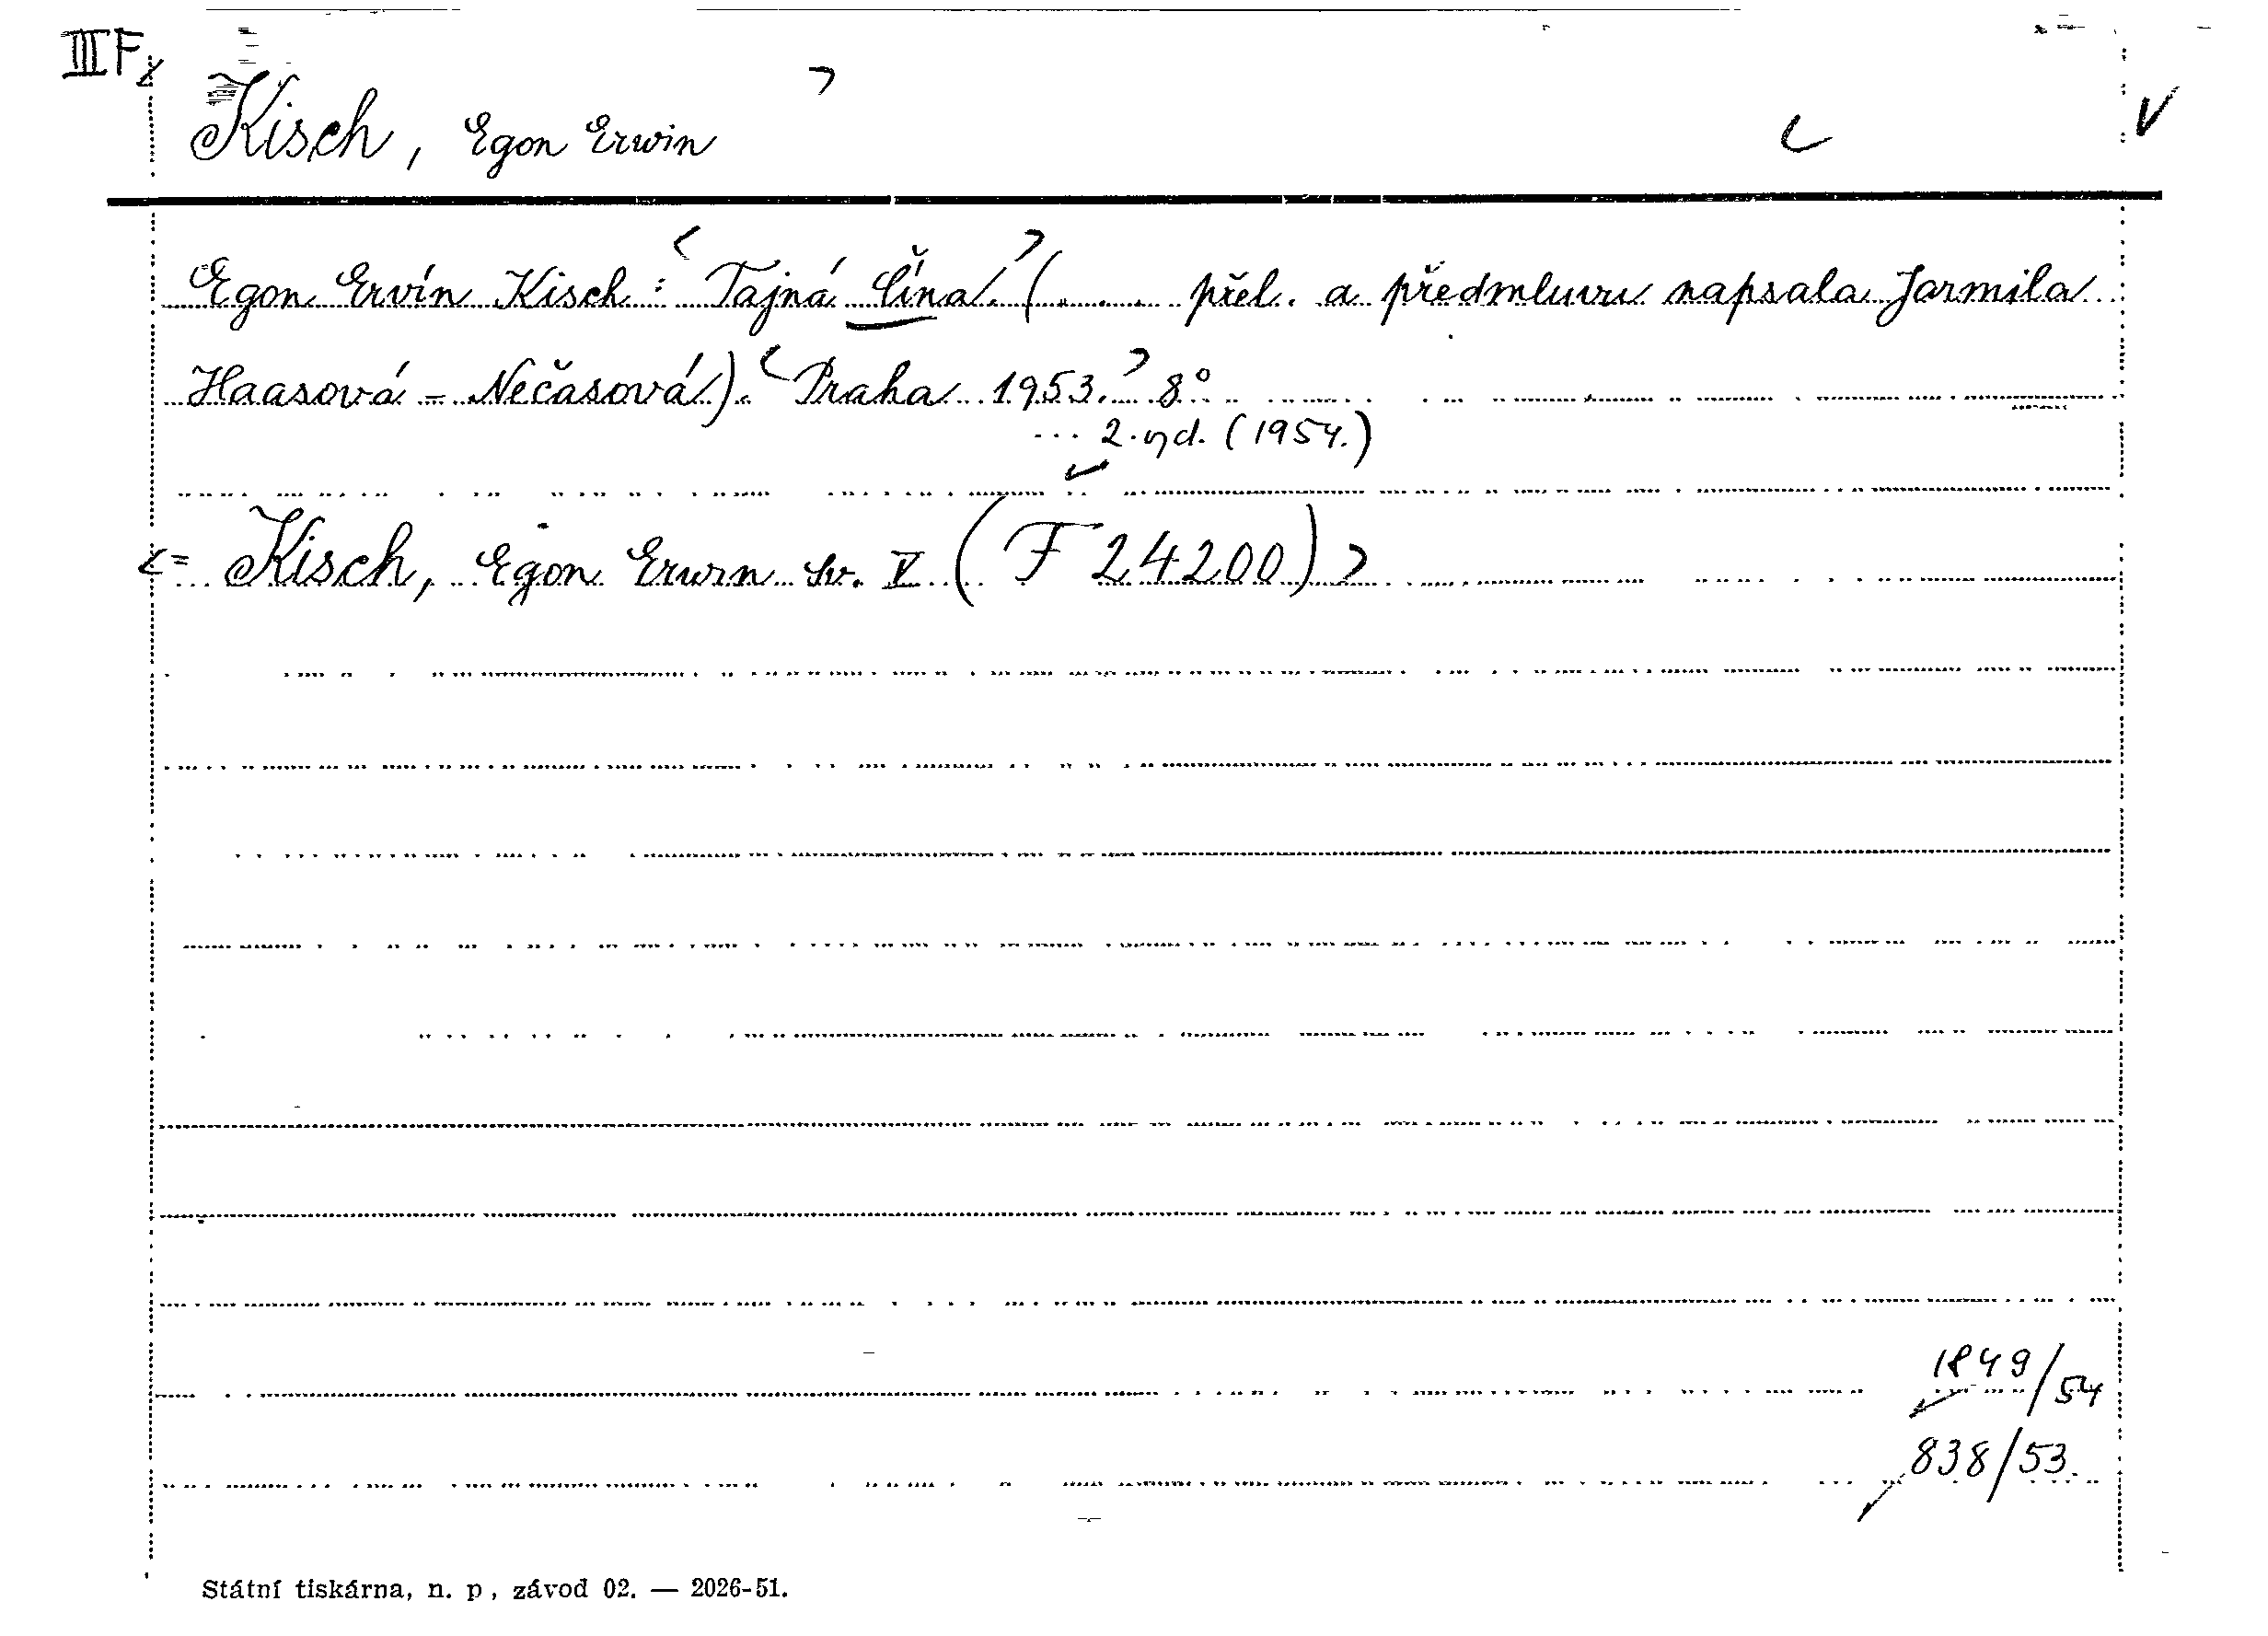 III F
Kisch, Egon Erwin
Egon Ervín Kisch: Tajná Čína. (... přel. a předmluvu napsala Jarmila
Haasová-Nečasová). Praha 1953. 8°
... 2. vyd. (1954.)
= Kisch, Egon Erwin sv. V (F 24200)
1849/54
838/53.
Státní tiskárna, n. p, závod 02. — 2026-51.